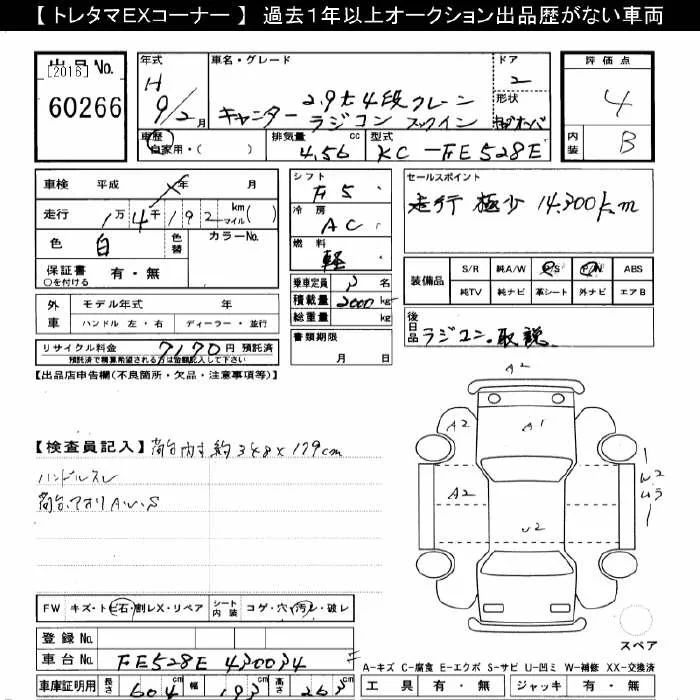 【 トレタマEXコーナー 】 過去1年以上オークション出品歴がない車両
出品No.
[2016]
60266
年式
H
9/2月
車名・グレード
2.9t 4段クレーン
キャンター ラジコン フックイン
ドア
2
形状
評価点
4
内装
B
車歴
自家用・( )
排気量 cc
4.56
型式
KC-FE528E
車検 平成 年 月
走行 1万4千192 km マイル( )
色 白 色替
カラーNo.
保証書 有・無
○を付ける
外車
モデル年式 年
ハンドル 左・右 ディーラー・並行
リサイクル料金 7170円 預託済
預託済で精算希望される方は金額記入して下さい
シフト
F5
冷房
AC
燃料
軽
乗車定員 3名
積載量 2000kg
総重量 kg
書類期限
月 日
セールスポイント
走行 極少 14,300km
装備品
S/R 純A/W P/S P/W ABS
純TV 純ナビ 革シート 外ナビ エアB
後日品
ラジコン.取説
【出品店申告欄(不良箇所・欠品・注意事項等)】
【検査員記入】荷台内寸約348×179cm
ハンドルスレ
荷台.アオリA.U.S
A2
A2
A1
A2
U2
FW キズ・トビ石・割レX・リペア シート内装 コゲ・穴・汚レ・破レ
登録No.
車台No. FE528E 430034
車庫証明用 長さ 604cm 幅 193cm 高さ 263cm
スペア
A－キズ C－腐食 E－エクボ S－サビ U－凹ミ W－補修 XX－交換済
工具 有・無 ジャッキ 有・無